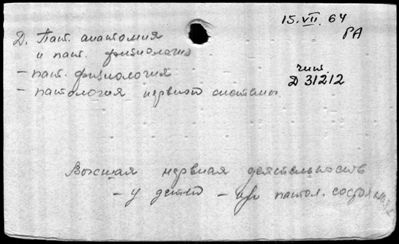 15.VII.64
РА
Д. Пат. анатомия
и пат. физиология
- пат. физиология
- патология нервной системы
чит.
Д 31212
Высшая нервная деятельность
- у детей - при патол. состояниях